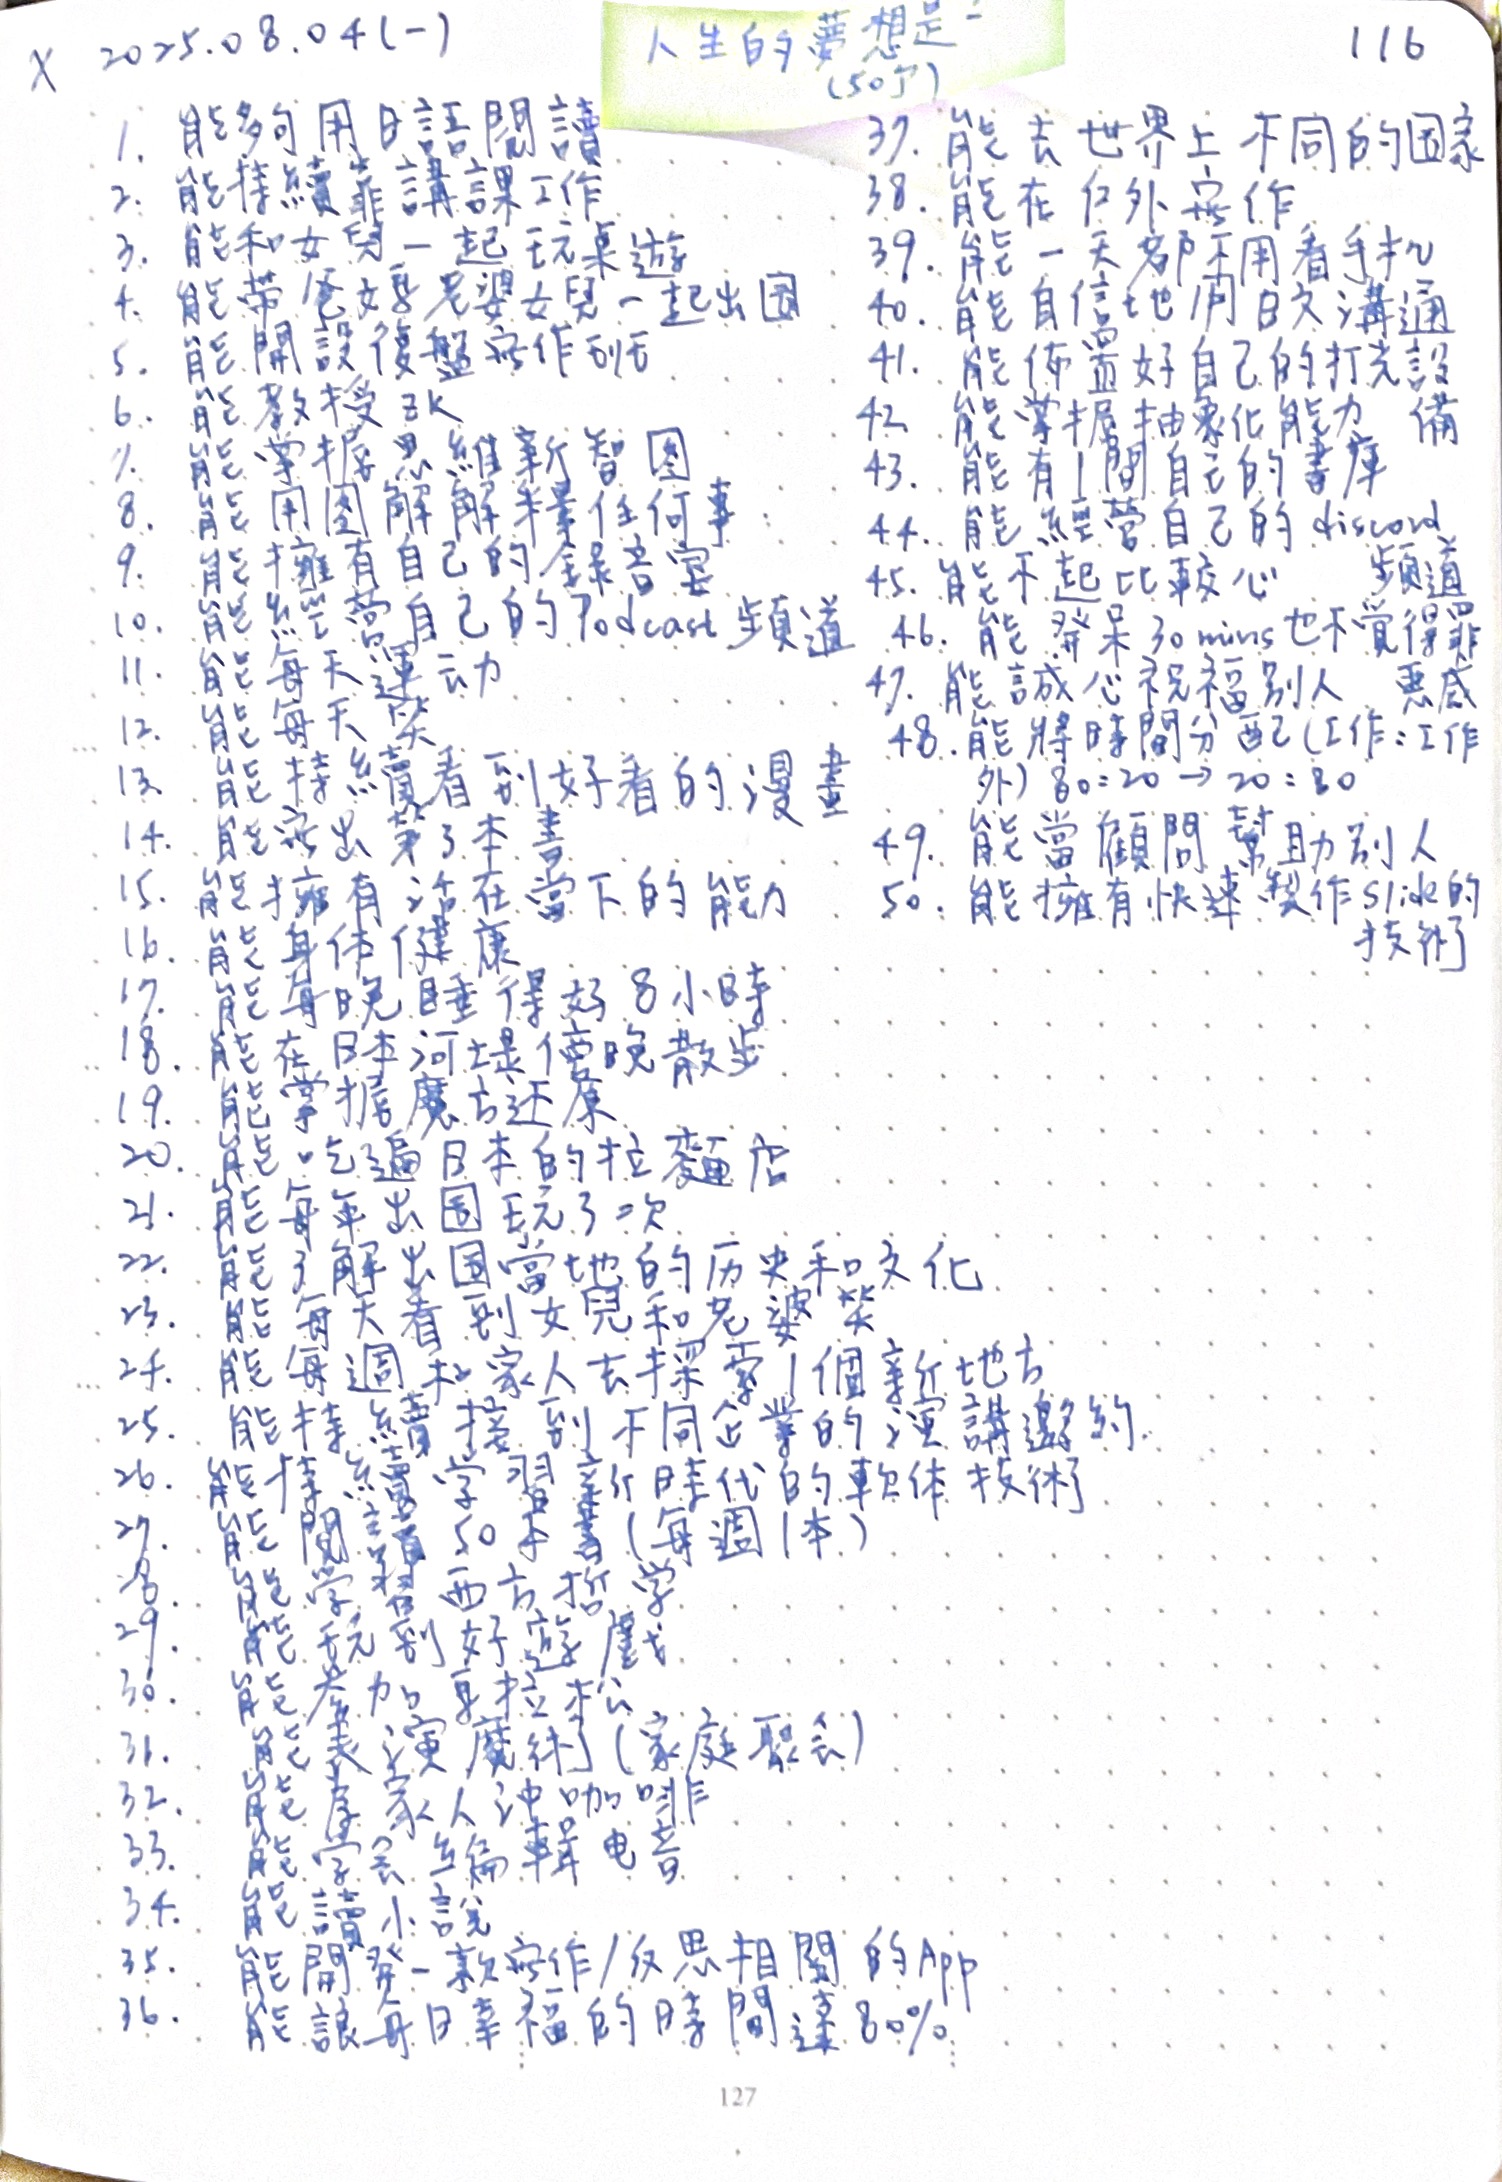 X 2025.08.04(一)
人生的夢想是
(50個)
116
1. 能夠用日語閱讀
2. 能持續靠講課工作
3. 能和女兒一起玩桌遊
4. 能帶爸媽老婆女兒一起出国
5. 能開設復盤寫作
6. 能教授ZK
7. 能掌握思維新智図
8. 能用図解解釋任何事
9. 能擁有自己的錄音室
10. 能經營自己的Podcast頻道
11. 能每天運动
12. 能每天笑
13. 能持續看到好看的漫畫
14. 能寫出第3本書
15. 能擁有活在當下的能力
16. 能身体健康
17. 能每晚睡得好8小時
18. 能在日本河堤傍晚散步
19. 能掌握魔方还原
20. 能吃遍日本的拉麵店
21. 能每年出国玩3次
22. 能了解出国當地的历史和文化
23. 能每天看到女兒和老婆笑
24. 能每週和家人去探索1個新地方
25. 能持續接到不同企業的演講邀約
26. 能持續学習新時代的軟体技術
27. 能閱讀50本書(每週1本)
28. 能学習西方哲学
29. 能玩到好遊戲
30. 能參加馬拉松
31. 能表演魔術(家庭聚会)
32. 能為家人沖咖啡
33. 能学会編輯电音
34. 能讀小說
35. 能開発一款寫作/反思相關的App
36. 能讓每日幸福的時間達80%
37. 能去世界上不同的国家
38. 能在户外寫作
39. 能一天都不用看手机
40. 能自信地用日文溝通
41. 能佈置好自己的打光設
備
42. 能掌握抽象化能力
43. 能有1間自己的書庫
44. 能經營自己的discord
頻道
45. 能不起比較心
46. 能発呆30mins也不覺得罪
惡感
47. 能誠心祝福別人
48. 能將時間分配(工作:工作
外) 80:20→20:80
49. 能當顧問幫助別人
50. 能擁有快速製作slide的
技術
127